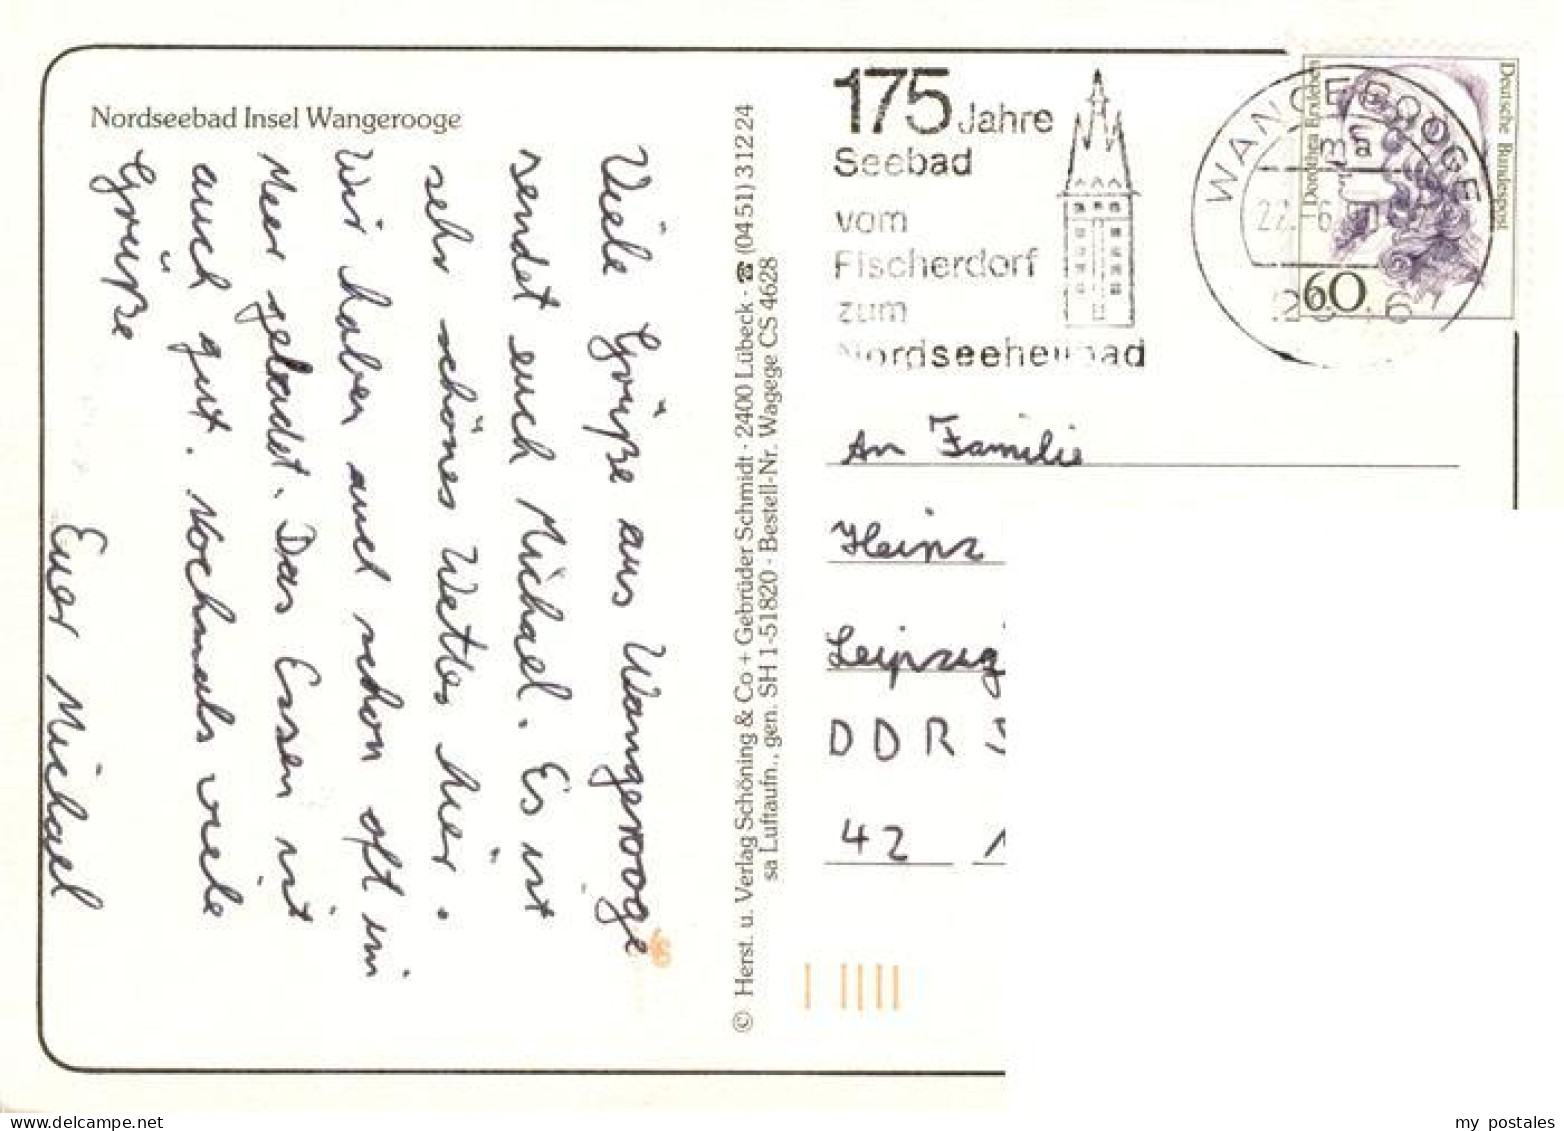 Nordseebad Insel Wangerooge
Viele Grüße aus Wangerooge
sendet euch Michael. Es ist
sehr schönes Wetter hier.
Wir haben auch schon oft im
Meer gebadet. Das Essen ist
auch gut. Nochmals viele
Grüße
Euer Michael
© Herst. u. Verlag Schöning & Co + Gebrüder Schmidt · 2400 Lübeck · ☎ (04 51) 3 12 24
sa Luftaufn., gen. SH 1-51820 · Bestell-Nr. Wagege CS 4628
175 Jahre
Seebad
vom
Fischerdorf
zum
Nordseeheilbad
WANGEROOGE
ma
Deutsche Bundespost
Dorothea Erxleben
60
An Familie
Heinz
Leipzig
DDR
42
my postales